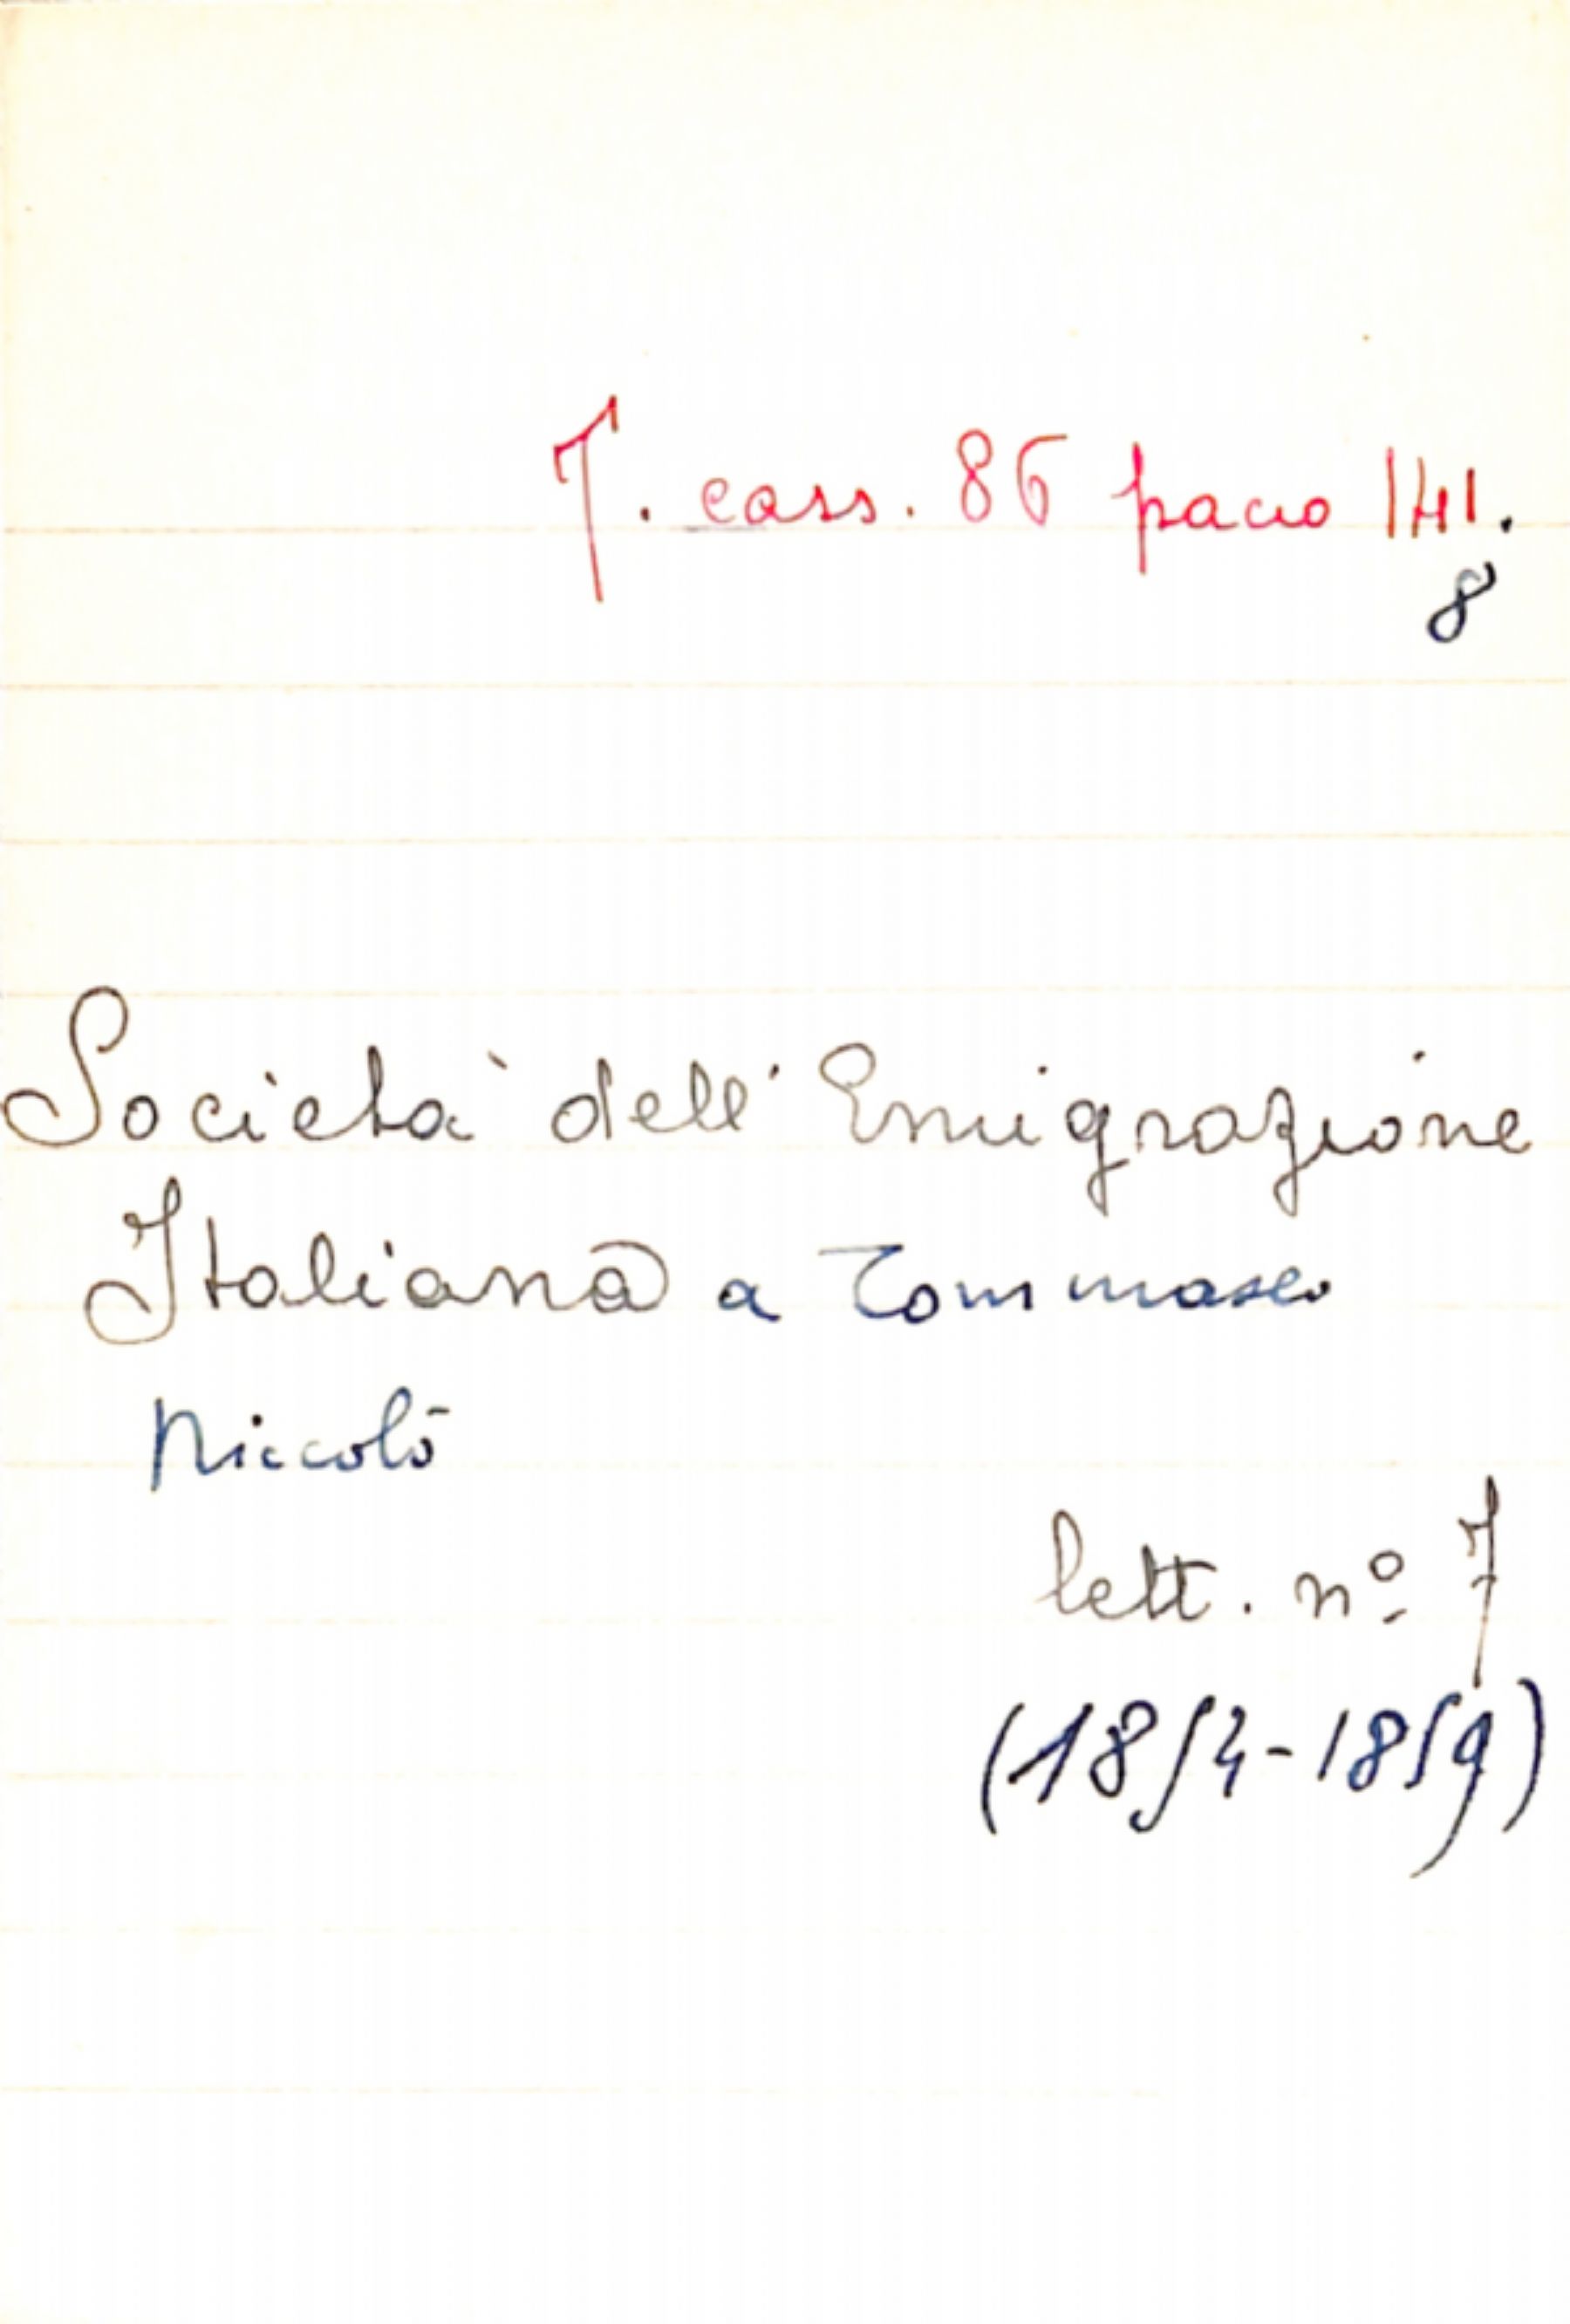 T. cass. 86 pacco 141.
8
Società dell'Emigrazione
Italiana a Tommaseo
Niccolò
lett. nº 7
(1854-1859)